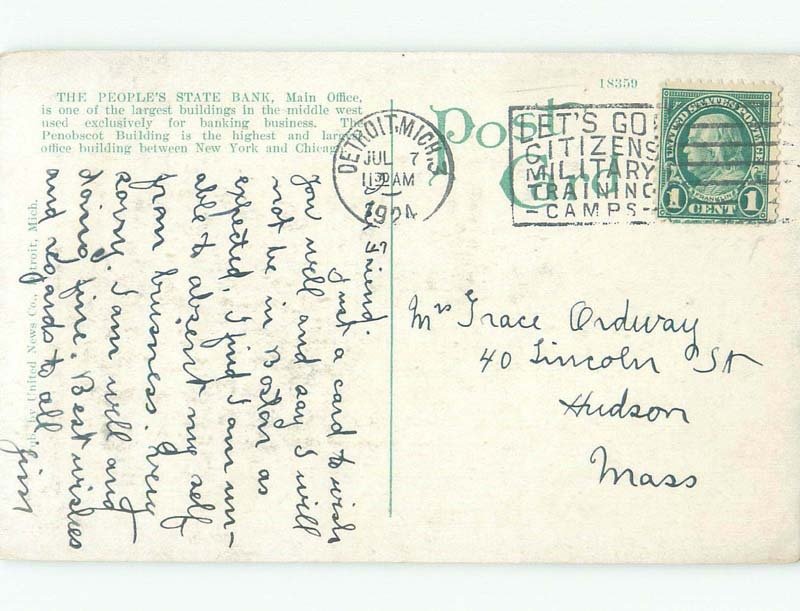 THE PEOPLE'S STATE BANK, Main Office,
is one of the largest buildings in the middle west
used exclusively for banking business. The
Penobscot Building is the highest and largest
office building between New York and Chicago.
18359
Post
Card
DETROIT, MICH. 3
JUL 7
1130 AM
1924
LET'S GO!
CITIZENS
MILITARY
TRAINING
-CAMPS-
UNITED STATES POSTAGE
FRANKLIN
1 CENT 1
Friend.
Just a card to wish
you well and say I will
not be in Boston as
expected. I find I am un-
able to absent my self
from business. Very
sorry. I am well and
doing fine. Best wishes
and regards to all
Pub. by United News Co., Detroit, Mich.
Mrs Grace Ordway
40 Lincoln St
Hudson
Mass